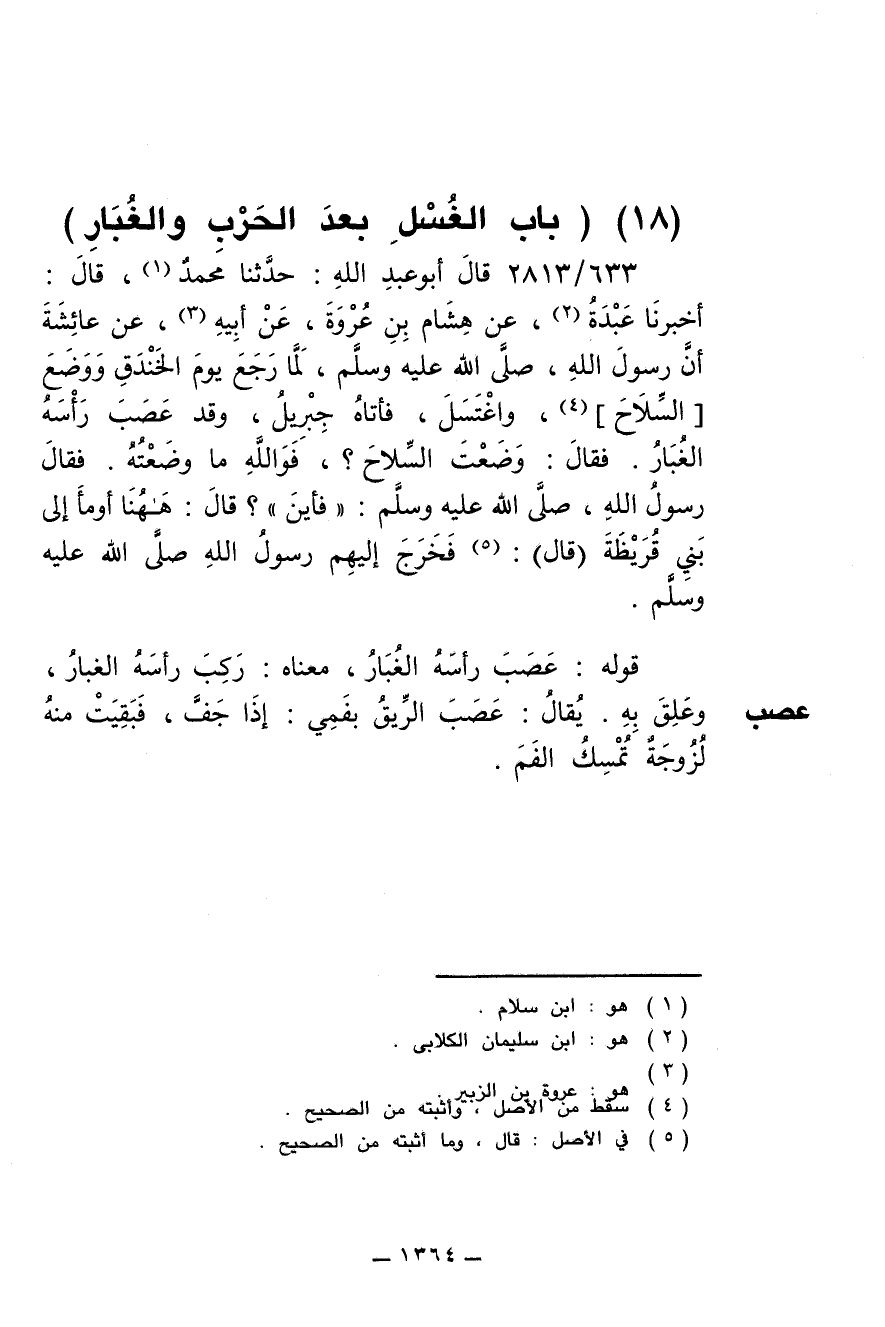 (١٨) ( باب الغُسْلِ بعدَ الحَرْبِ والغُبَارِ )
٢٨١٣/٦٣٣ قالَ أبوعبدِ اللهِ : حدَّثنا محمدٌ (١) ، قالَ :
أخبرنَا عَبْدَةُ (٢) ، عن هِشَام بنِ عُرْوَةَ ، عَنْ أبيهِ (٣) ، عن عائِشَةَ
أنَّ رسولَ اللهِ ، صلَّى الله عليه وسلَّم ، لَمَّا رَجَعَ يومَ الخَنْدَقِ وَوَضَعَ
[ السِّلَاحَ ] (٤) ، واغْتَسَلَ ، فأتاهُ جِبْرِيلُ ، وقد عَصَبَ رَأْسَهُ
الغُبَارُ . فقالَ : وَضَعْتَ السِّلاحَ ؟ ، فَوَاللَّهِ ما وضَعْتُهُ . فقالَ
رسولُ اللهِ ، صلَّى الله عليه وسلَّم : « فأينَ » ؟ قالَ : هَـٰهُنَا أومأَ إلى
بَنِي قُرَيْظَةَ (قال) : (٥) فَخَرَجَ إليهِم رسولُ اللهِ صلَّى الله عليه
وسلَّم .
قوله : عَصَبَ رأسَهُ الغُبَارُ ، معناه : رَكِبَ رأسَهُ الغبارُ ،
عصب وعَلِقَ بِهِ . يُقالُ : عَصَبَ الرِّيقُ بفَمِي : إذَا جَفَّ ، فَبَقِيَتْ منهُ
لُزُوجَةٌ تُمْسِكُ الفَمَ .
( ١ ) هو : ابن سلام .
( ٢ ) هو : ابن سليمان الكلابى .
( ٣ )
هو : عروة بن الزبير .
( ٤ ) سقط من الأصل ، وأثبته من الصحيح .
( ٥ ) في الأصل : قال ، وما أثبته من الصحيح .
— ١٣٦٤ —